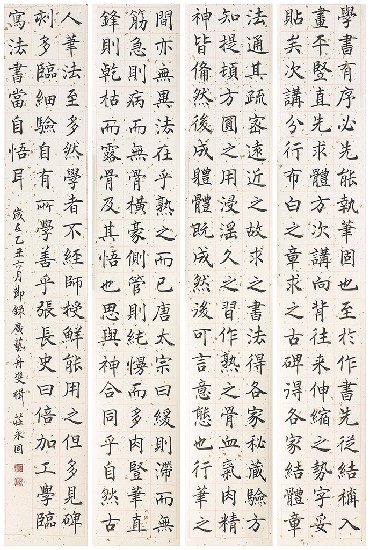 學書有序必先能執筆固也至於作書先從結構入
畫平豎直先求體方次講向背往來伸縮之勢字妥
貼矣次講分行布白之章求之各家得各家結體章
法通其疏密遠近之故求之書法得各家秘藏驗方
知提頓方圓之用浸淫久之習作熟之骨血氣肉精
神皆備然後成體體既成然後可言意態也行筆之
間亦無異法在乎熟之而已唐太宗曰緩則滯而無
筋急則病而無骨橫豪側管則純慢而多肉豎筆直
鋒則乾枯而露骨及其悟也思與神合同乎自然古
人筆法至多然學者不經師授鮮能用之但多見碑
刻多臨細驗自有所學善乎張長史曰倍加工學臨
寫法書當自悟耳 歲在乙丑六月節錄廣藝舟雙楫 莊永固